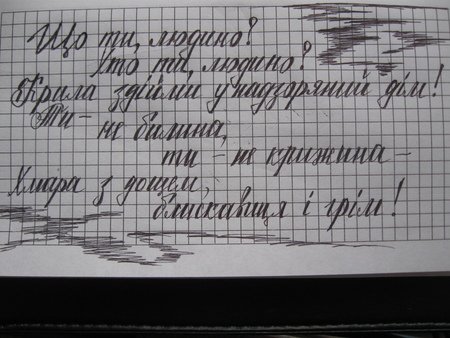 Що ти, людино?
Хто ти, людино?
Крила здійми у надзоряний дім!
Ти -
не билина,
ти - не крижина -
Хмара з дощем,
блискавиця і грім!